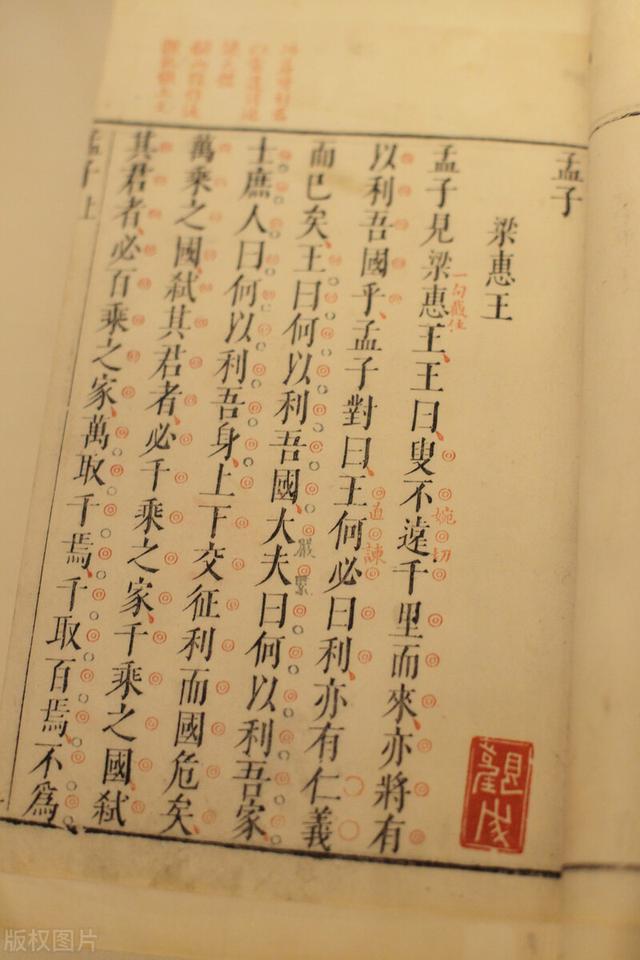 孟子
梁惠王
孟子見梁惠王王曰叟不遠千里而來亦將有
一句截住
婉切
以利吾國乎孟子對曰王何必曰利亦有仁義
直諫
而已矣王曰何以利吾國大夫曰何以利吾家
士庶人曰何以利吾身上下交征利而國危矣
萬乘之國弑其君者必千乘之家千乘之國弑
其君者必百乘之家萬取千焉千取百焉不爲
孟子上
版权图片